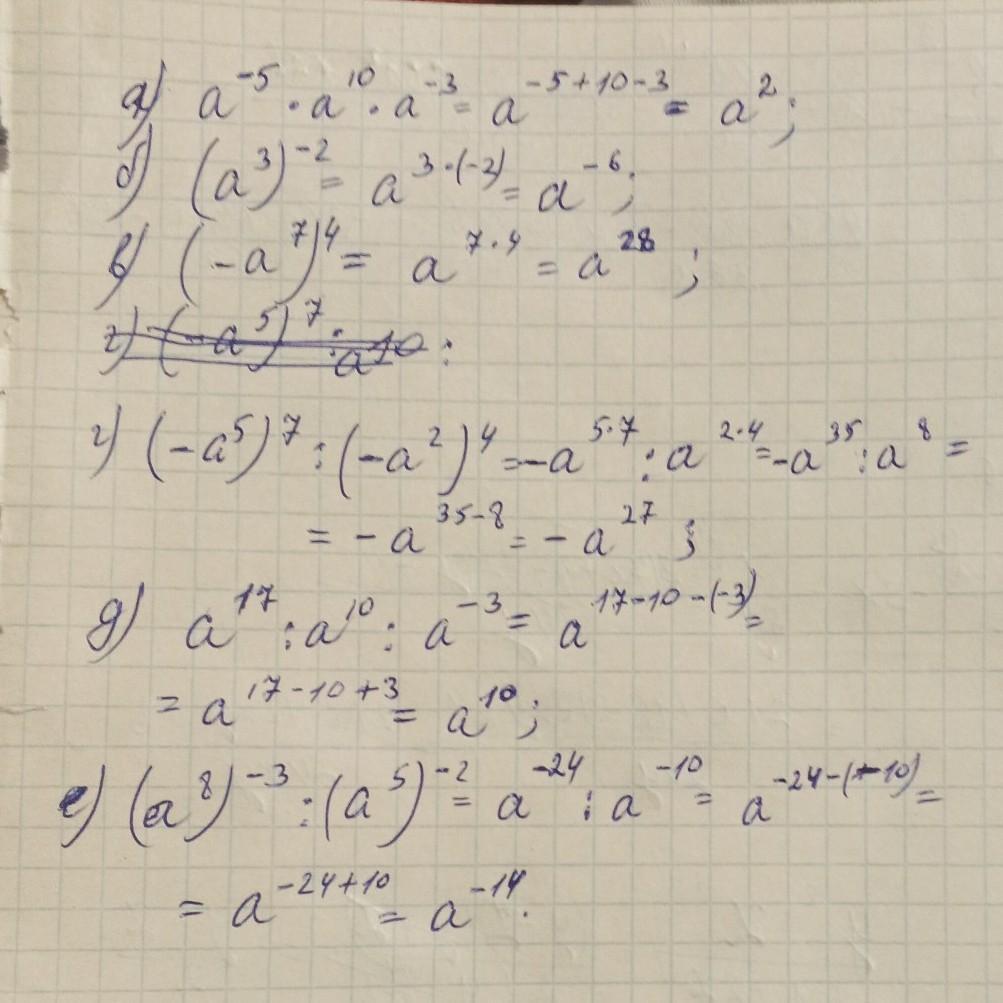 а) a⁻⁵ · a¹⁰ · a⁻³ = a⁻⁵⁺¹⁰⁻³ = a²;
б) (a³)⁻² = a^(3·(-2)) = a⁻⁶;
в) (-a⁷)⁴ = a^(7·4) = a²⁸;
г) (-a⁵)⁷ : a¹⁰ :
г) (-a⁵)⁷ : (-a²)⁴ = -a^(5·7) : a^(2·4) = -a³⁵ : a⁸ =
= -a³⁵⁻⁸ = -a²⁷;
д) a¹⁷ : a¹⁰ : a⁻³ = a^(17-10-(-3)) =
= a¹⁷⁻¹⁰⁺³ = a¹⁰;
е) (a⁸)⁻³ : (a⁵)⁻² = a⁻²⁴ : a⁻¹⁰ = a^(-24-(-10)) =
= a⁻²⁴⁺¹⁰ = a⁻¹⁴.